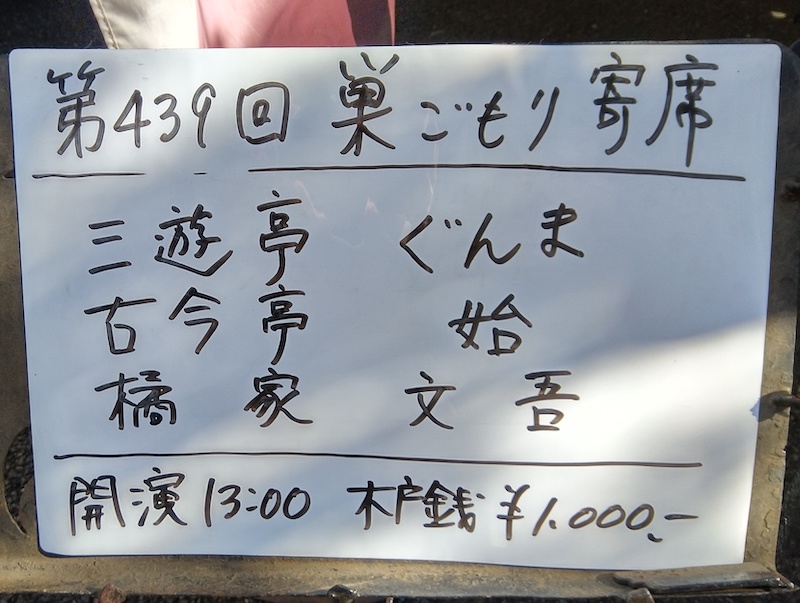 第439回 巣ごもり寄席
三遊亭 ぐんま
古今亭 始
橘家 文吾
開演 13:00 木戸銭 ¥1.000.-